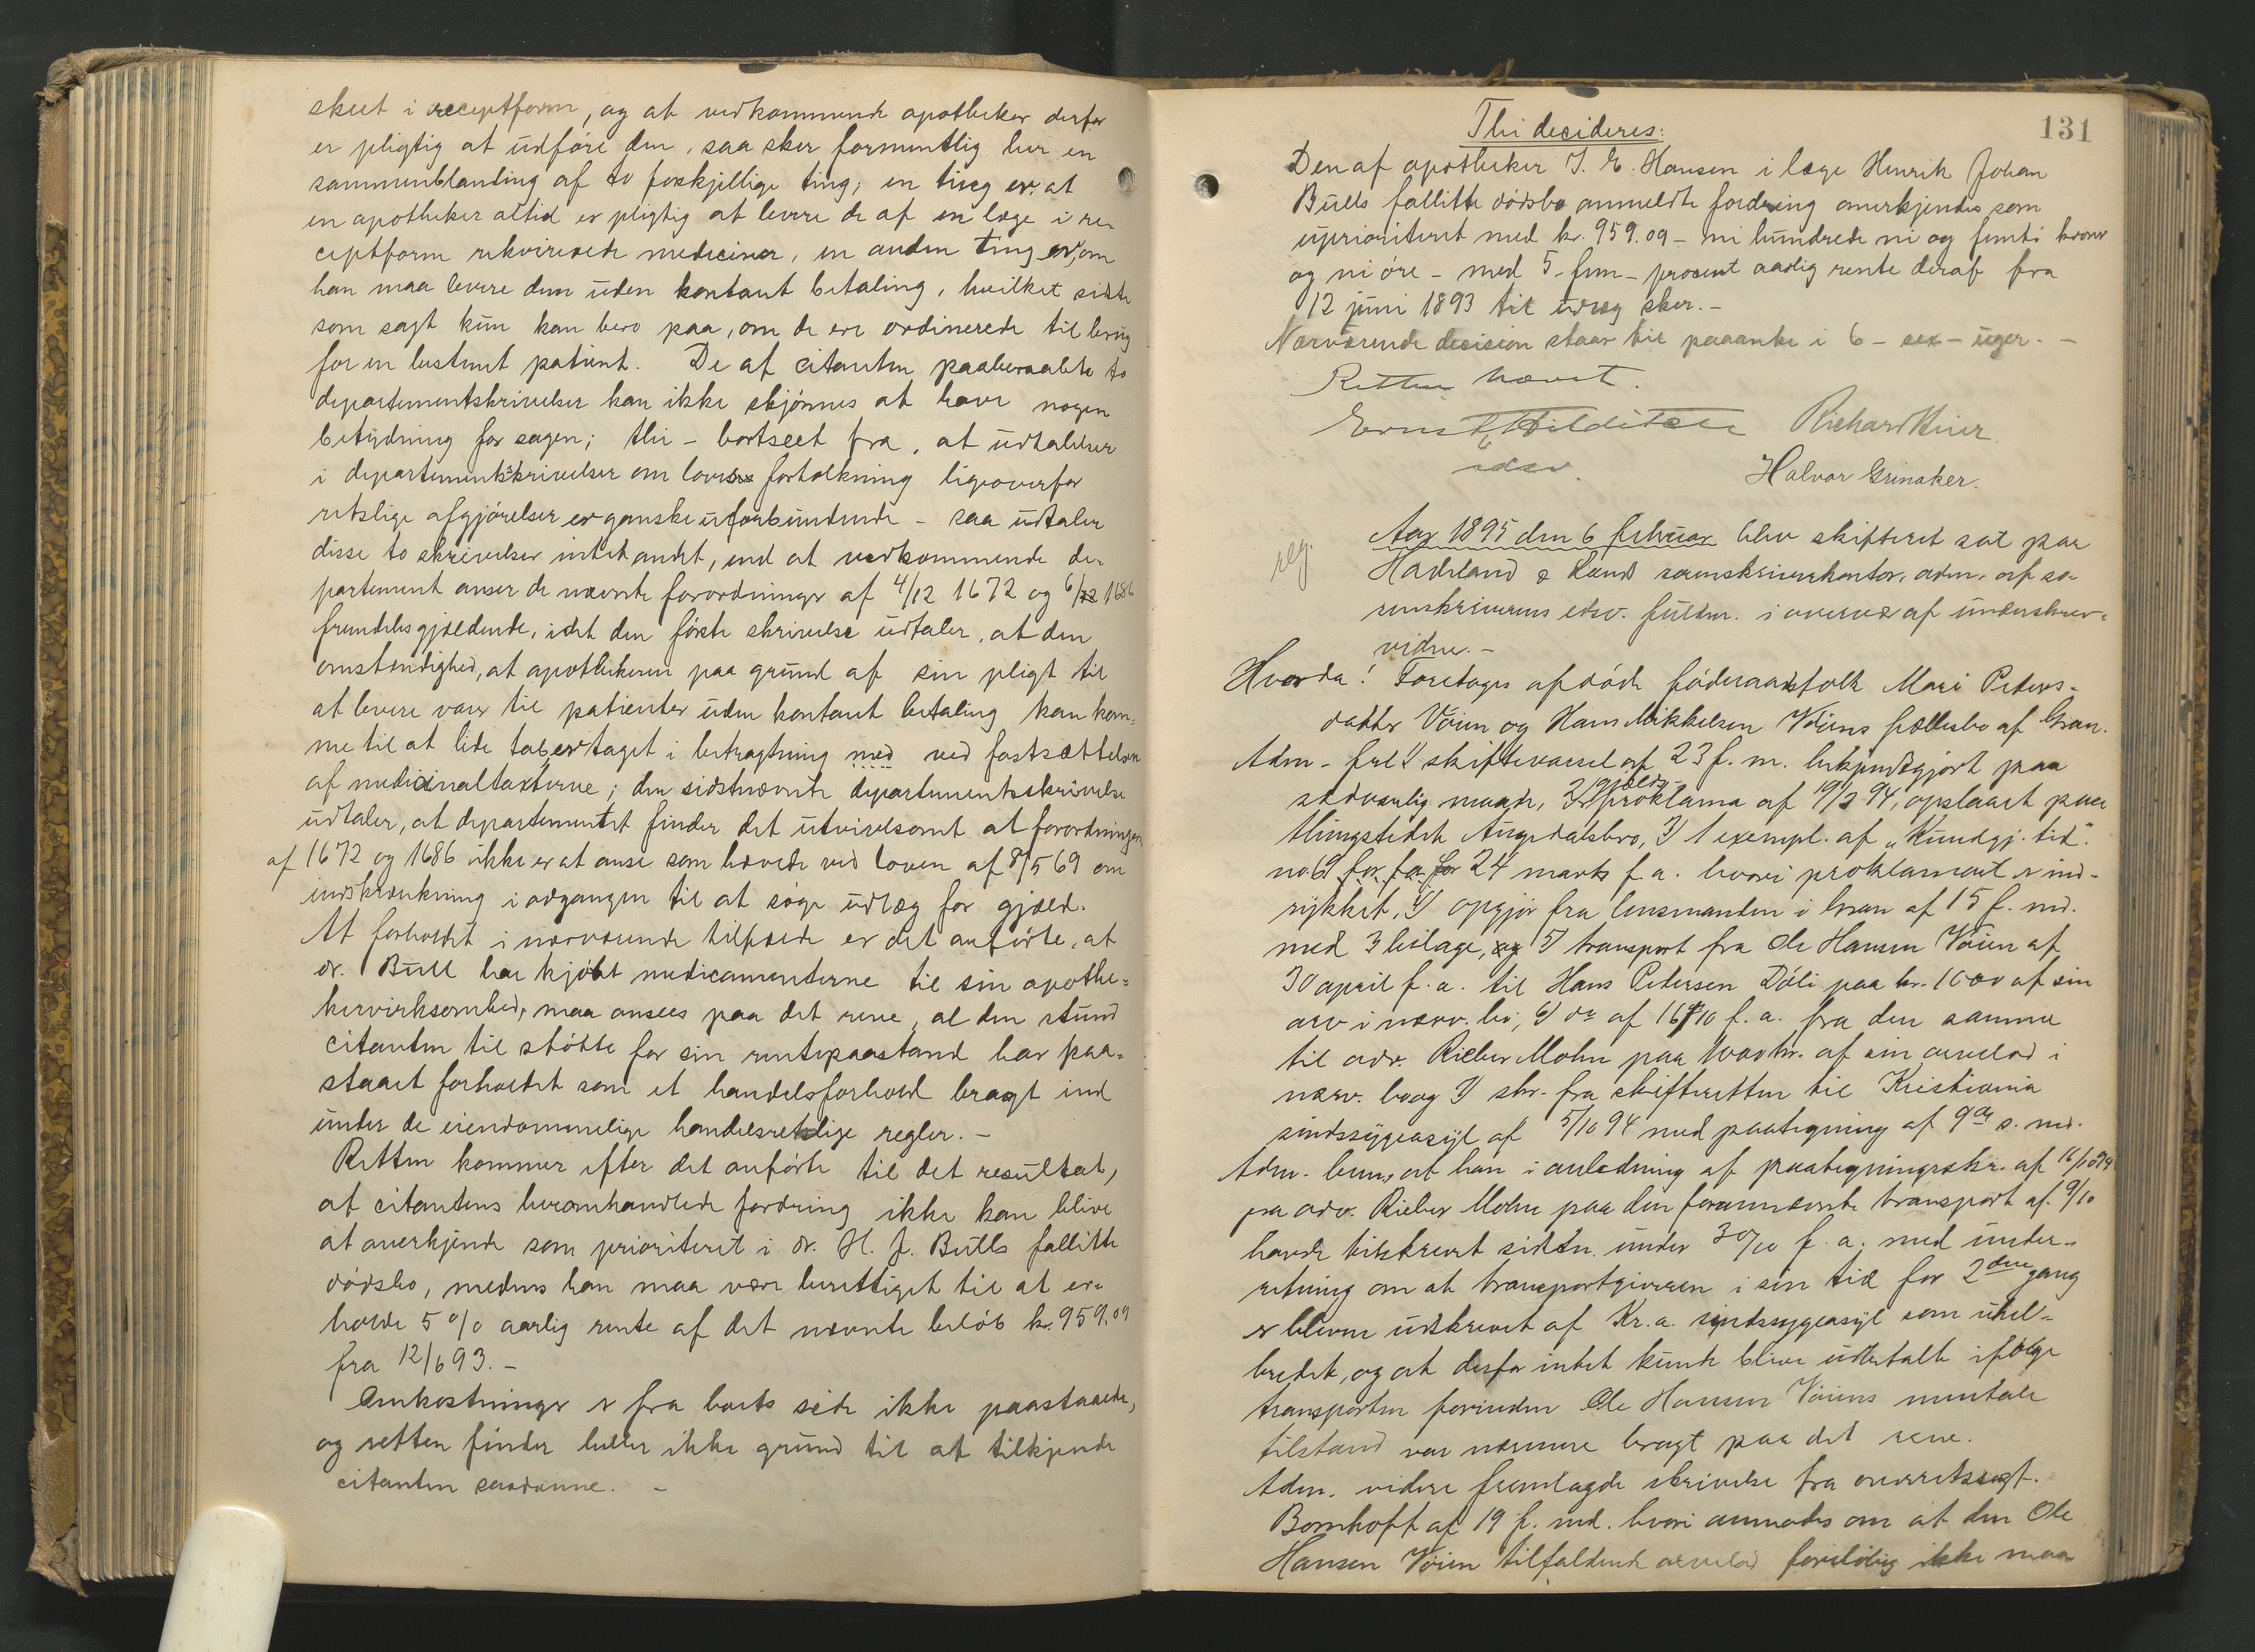 skeet i receptform, og at vedkommende apotheker derfor
er pligtig at udføre den, saa sker formentlig her en
sammenblanding af to forskjellige ting; en ting er, at
en apotheker altid er pligtig at levere de af en læge i re-
ceptform rekvirerede mediciner, en anden ting er, om
han maa levere dem uden kontant betaling, hvilket sidste
som sagt kun kan bero paa, om de ere ordinerede til brug
for en bestemt patient. De af citanten paaberaabte to
departementskrivelser kan ikke skjønnes at have nogen
betydning for sagen; thi - bortseet fra, at udtalelser
i departementsskrivelser om lovens fortolkning ligeoverfor
retslige afgjørelser er ganske uforbindende - saa udtaler
disse to skrivelser intet andet, end at vedkommende de-
partement anser de nævnte forordninger af 4/12 1672 og 6/12 1686
fremdeles gjældende, idet den første skrivelse udtaler, at den
omstændighed, at apothekeren paa grund af sin pligt til
at levere varer til patienter uden kontant betaling kan kom-
me til at lide tab, er taget i betragtning med ved fastsættelsen
af medicinaltaxterne; den sidstnævnte departementsskrivelse
udtaler, at departementet finder det utvivlsomt at forordningen
af 1672 og 1686 ikke er at anse som hævede ved loven af 8/5 69 om
indskrænkning i adgangen til at søge udlæg for gjæld.
At forholdet i nærværende tilfælde er det anførte, at
dr. Bull har kjøbt medicamenterne til sin apothe-
kervirksomhed, maa ansees paa det rene, al den stund
citanten til støtte for sin rentepaastand har paa-
staaet forholdet som et handelsforhold bragt ind
under de eiendommelige handelsretslige regler. -
Retten kommer efter det anførte til det resultat,
at citantens heromhandlede fordring ikke kan blive
at anerkjende som prioriteret i dr. H. J. Bulls fallitte
dødsbo, medens han maa være berettiget til at er-
holde 5 % aarlig rente af det nævnte beløb kr. 959.09
fra 12/6 93. -
Omkostninger er fra boets side ikke paastaaede,
og retten finder heller ikke grund til at tilkjende
citanten saadanne. -
131
Thi decideres:
Den af apotheker J. E. Hansen i læge Henrik Johan
Bulls fallitte dødsbo anmeldte fordring anerkjendes som
uprioriteret med kr. 959.09 - ni hundrede ni og femti kroner
og ni øre - med 5 - fem - procent aarlig rente deraf fra
12 juni 1893 til udlæg sker. -
Nærværende decision staar til paaanke i 6 - sex - uger. -
Retten hævet.
Ernst Hilditsch Richard Kiær
edsv. Halvor Grinaker.
reg.
Aar 1895 den 6 februar blev skifteret sat paa
Hadeland & Land sorenskriverkontor, adm. af so-
renskriverens edsv. fuldm. i overvær af underskrev.
vidner. -
Hvorda! Foretages afdøde føderaadsfolk Mari Peders-
datter Vøien og Hans Mikkelsen Vøiens fællesbo af Gran.
Adm. frel. 1) skiftevarsel af 23 f. m. bekjendtgjort paa
sædvanlig maade, 2) gjælds-
proklama af 19/3 94, opslaaet paa
thingstedet Augedalsbro, 3) 1 exempl. af "Kundgj. tid."
no 61 for 24 marts f. a. hvori proklamaet er ind-
rykket, 4) opgjør fra lensmanden i Gran af 15 f. md.
med 3 bilage, 5) transport fra Ole Hansen Vøien af
30 april f. a. til Hans Petersen Døli paa kr. 1000 af sin
arv i nærv. bo, 6) do af 16/10 f. a. fra den samme
til adv. Rieber Mohn paa 1000 kr. af sin arvelod i
nærv. bo og 7) skr. fra skifteretten til Kristiania
sindssygeasyl af 5/10 94 med paategning af 9de s. md.
Adm. bem., at han i anledning af paategningsskr. af 16/10 94
fra adv. Rieber Mohn paa den forannævnte transport af 9/10
havde tilskrevet sidstn. under 30/10 f. a. med under-
retning om at transportgiveren i sin tid for 2den gang
er bleven udskrevet af Kr.a. sindssygeasyl som uhel-
bredet, og at derfor intet kunde blive udbetalt ifølge
transporten forinden Ole Hansen Vøiens mentale
tilstand var nærmere bragt paa det rene.
Adm. videre fremlagde skrivelse fra overretssagf.
Bomhoff af 19 f. md. hvori anmodes om at den Ole
Hansen Vøien tilfaldende arvelod foreløbig ikke maa